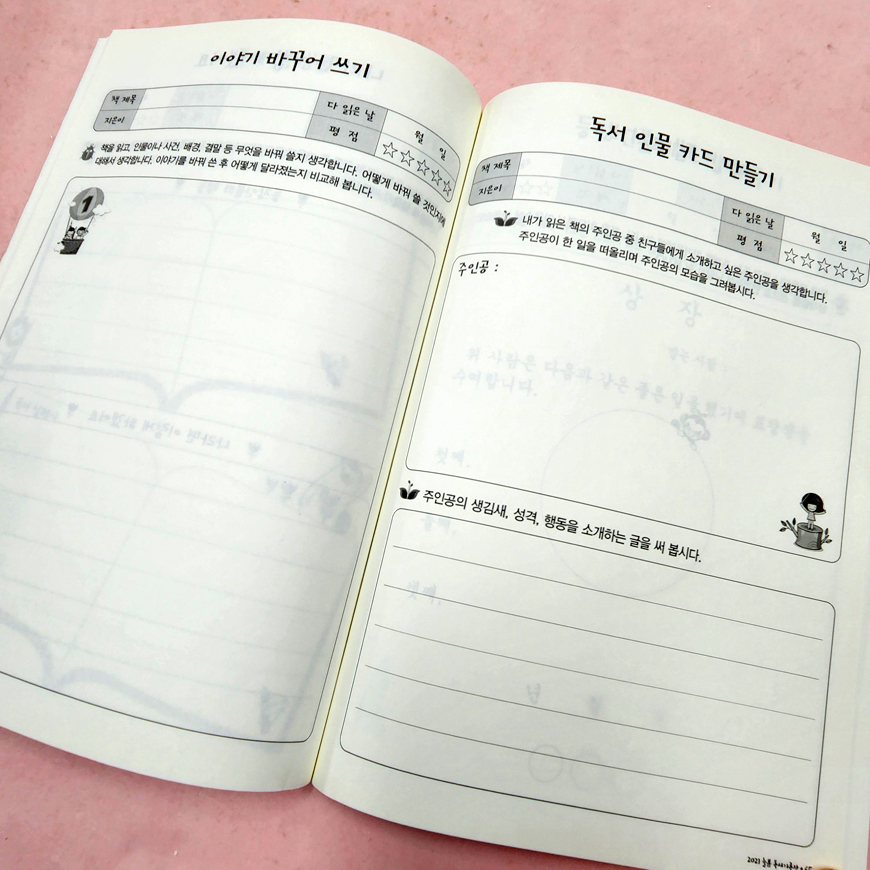 이야기 바꾸어 쓰기
책 제목
다 읽은 날
월 일
지은이
평 점
☆☆☆☆☆
책을 읽고, 인물이나 사건, 배경, 결말 등 무엇을 바꿔 쓸지 생각합니다. 어떻게 바꿔 쓸 것인지에
대해서 생각합니다. 이야기를 바꿔 쓴 후 어떻게 달라졌는지 비교해 봅니다.
1
독서 인물 카드 만들기
책 제목
다 읽은 날
월 일
지은이
평 점
☆☆☆☆☆
내가 읽은 책의 주인공 중 친구들에게 소개하고 싶은 주인공을 생각합니다.
주인공이 한 일을 떠올리며 주인공의 모습을 그려봅시다.
주인공 :
상 장
위 사람은 다음과 같은 좋은
수여합니다.
첫째,
둘째,
셋째,
주인공의 생김새, 성격, 행동을 소개하는 글을 써 봅시다.
2021